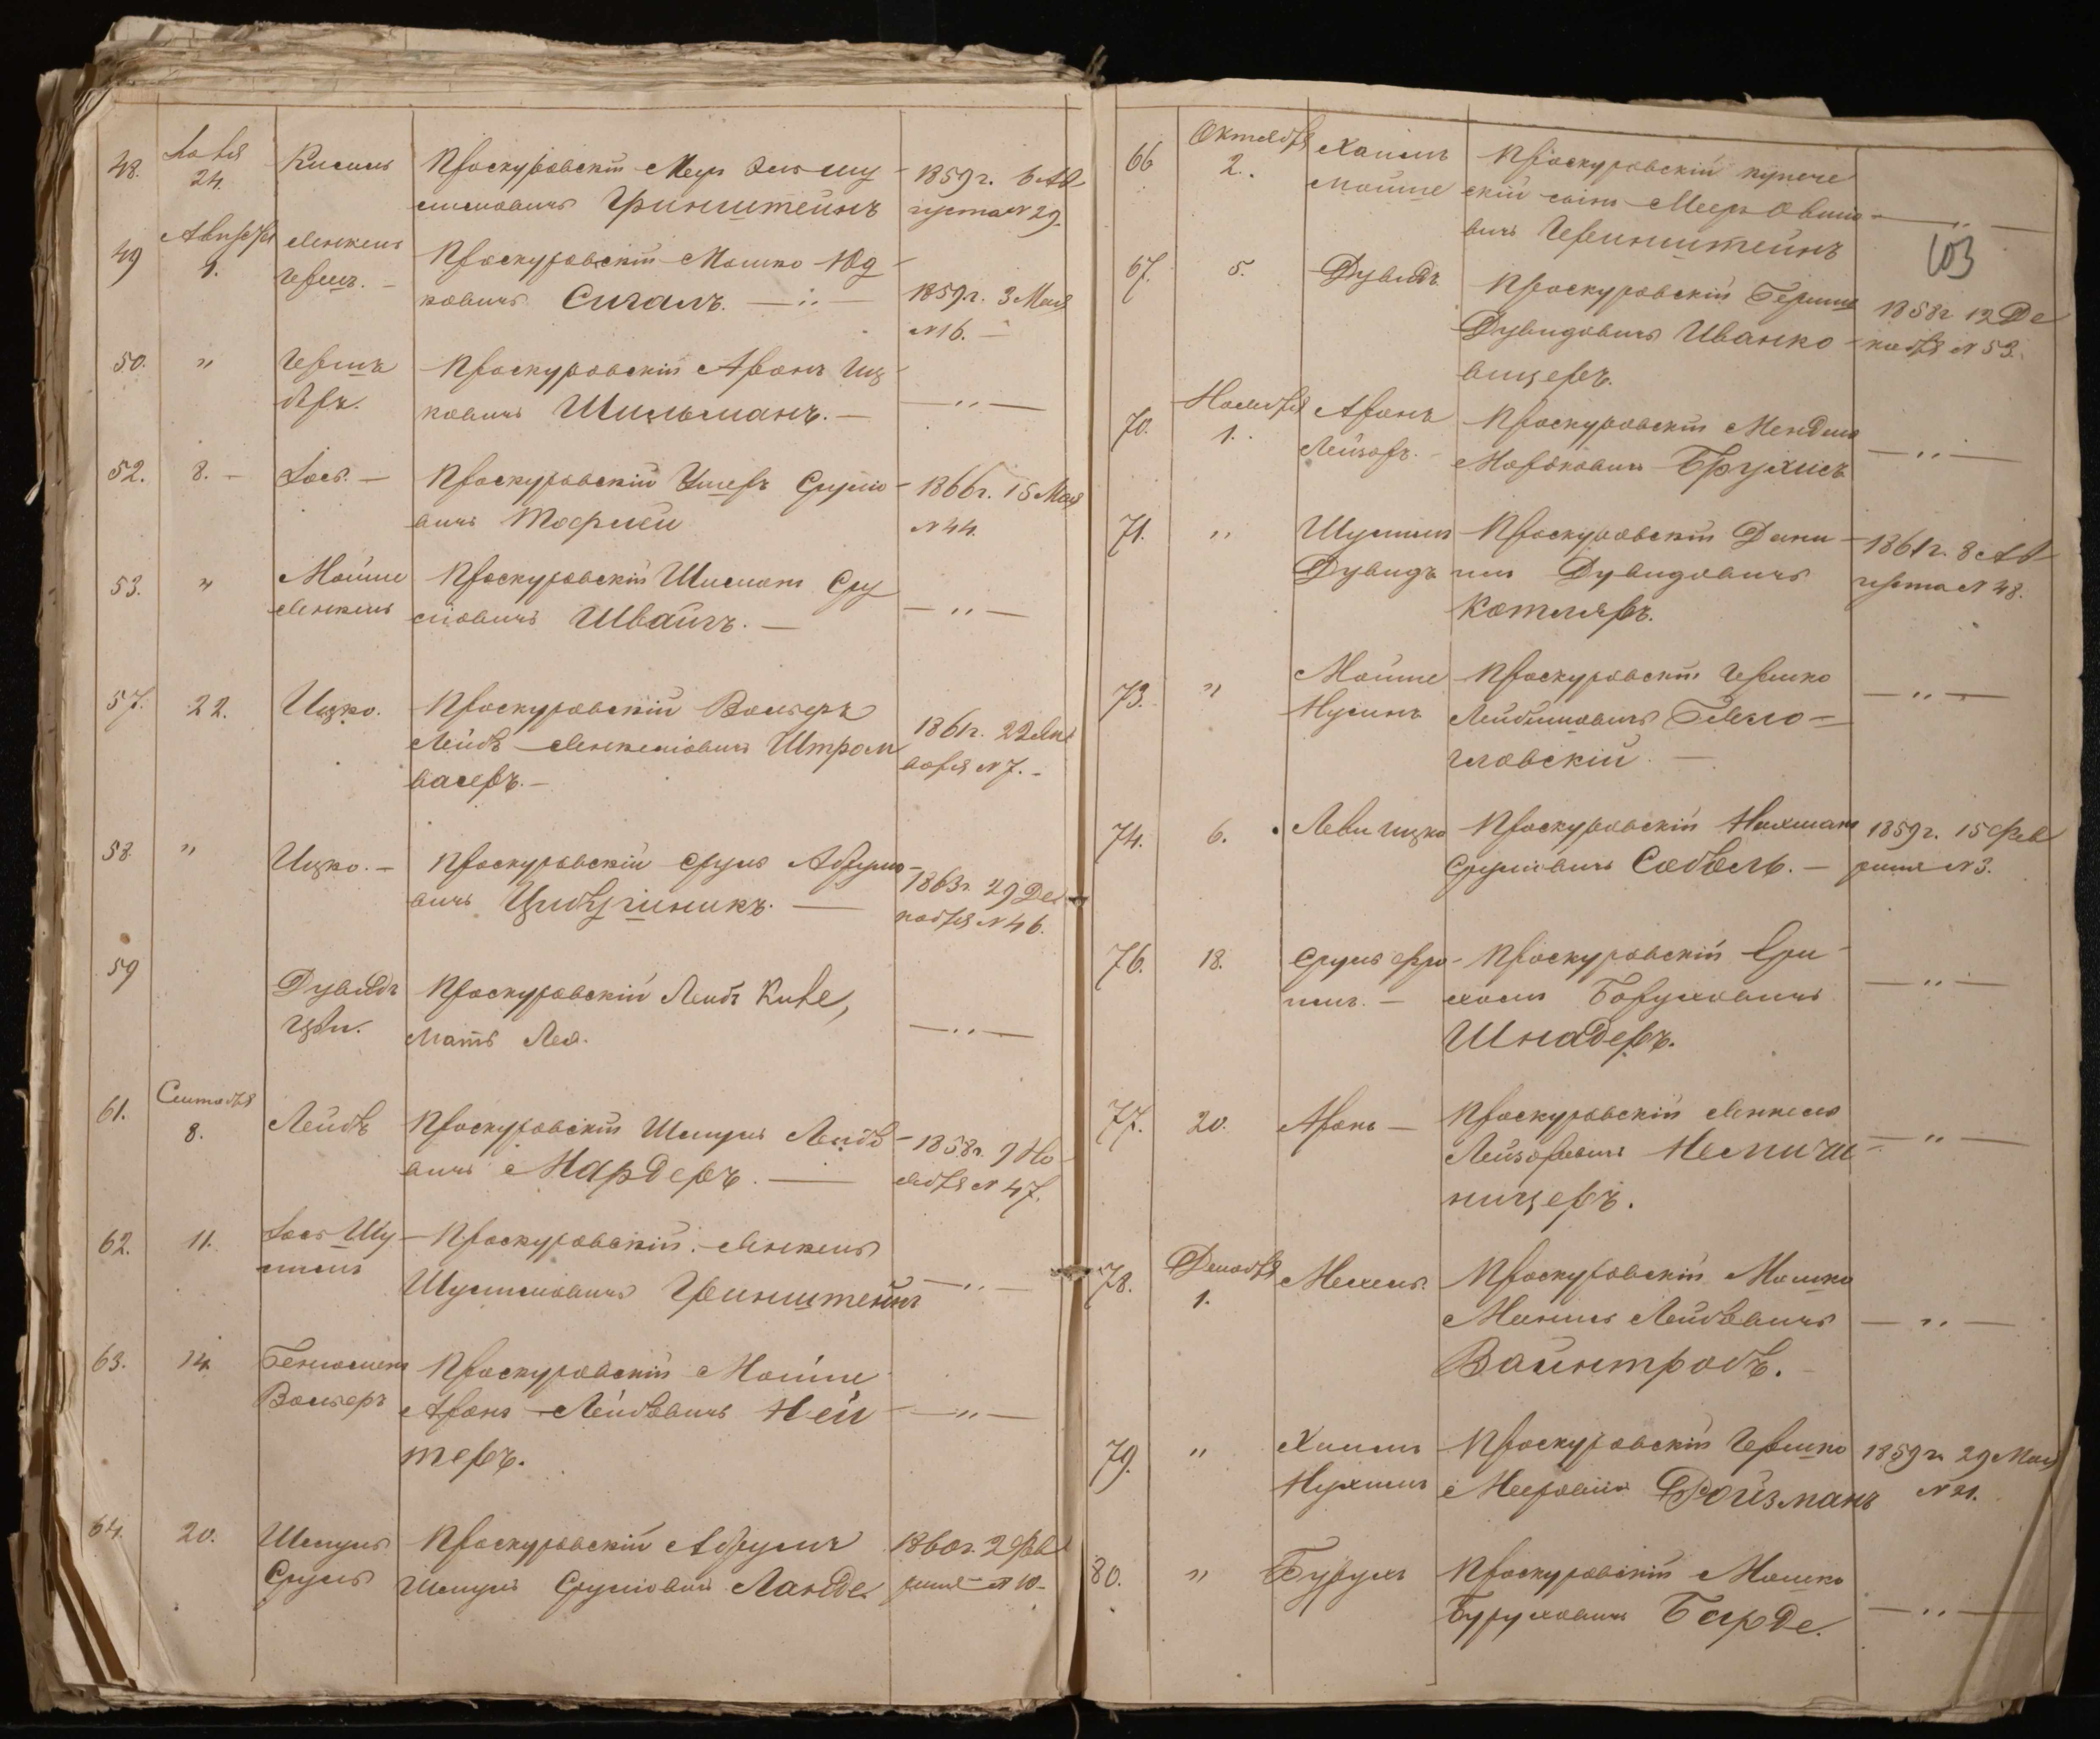 48.
24.
Кисиль
Проскуровскій Меер Эль Шу
лимовичъ Гринштейнъ
1859 г. 6 Ав
густа N 29.
49
Августа
1.
Янкель
Герш. –
Проскуровскій Мошко Юд
ковичъ Сигалъ.
1859 г. 3 Мая
N 16. –
50.
"
Гершъ
Бѣръ.
Проскуровскій Аронъ Иц
ковичъ Шильманъ. –
— " —
52.
8. –
Іось. –
Проскуровскій Ушеръ Срулю
вичъ
1866 г. 15 Мая
N 44.
53.
"
Мойше
Янкель
Проскуровскій Шиліомъ Сру
ліовичъ Швайгъ. –
— " —
57.
22.
Ицко.
Проскуровскій Вольфъ
Лейбъ Янкеліовичъ Штром
васеръ. –
1861 г. 22 Ян
варя N 7. –
58.
"
Ицко. –
Проскуровскій Сруль Абрумо
вичъ Цибулиникъ.
1863 г. 29 Де
кабря N 46.
59
Дувидъ
Цви.
Проскуровскій Лейбъ Киве,
мать Лея.
— " —
61.
Сентября
8.
Лейбъ
Проскуровскій Шмуль Лейбо
вичъ Мардеръ.
1858 г. 9 Но
ября N 47.
62.
11.
Іось Шу
лимъ
Проскуровскій Янкель
Шулимовичъ Гринштейнъ
— " —
63.
14.
Беньюминъ
Вольфъ
Проскуровскій Мойше
Аронъ Лейбовичъ Ней
теръ.
— " —
64.
20.
Шмуль
Сруль
Проскуровскій Абрумъ
Шмуль Сруліовичъ Ланде
1860 г. 2 Фев
раля N 10 –
66
Октября
2.
Хаимъ
Мойше
Проскуровскій купече
скій сынъ Мееръ Овшіо
вичъ Геринштейнъ
103
67.
5.
Дувидъ
Проскуровскій Берко
Дувидовичъ Иванко
вицеръ.
1858 г. 12 Де
кабря N 53.
70.
Ноября
1.
Аронъ
Лейзоръ.
Проскуровскій Мендель
Мордковичъ Брухисъ
— " —
71.
"
Шулимъ
Дувидъ
Проскуровскій Дани
ил Дувидовичъ
Котляръ.
1861 г. 8 Ав
густа N 48.
73.
"
Мойше
Нусинъ
Проскуровскій Гершко
Лейбишовичъ Бѣло
гловскій
— " —
74.
6.
Леви Ицко
Проскуровскій Нахманъ
Сруліовичъ Соболь. –
1859 г. 15 Фев
раля N 3.
76.
18.
Сруль Фро
имъ. –
Проскуровскій Ери
хомъ Боруховичъ
Шнадеръ.
— " —
77.
20.
Аронъ –
Проскуровскій Янкель
Лейзоровичъ Немичи
ницеръ.
— " —
78.
Декабря
1.
Мехель.
Проскуровскій Мошко
Маниль Лейбовичъ
Вайнтробъ.
— " —
79.
"
Хаимъ
Нухимъ
Проскуровскій Гершко
Меровичъ Фройзманъ
1859 г. 29 Мая
N 21.
80.
"
Бурухъ
Проскуровскій Мошко
Буруховичъ Барде.
— " —